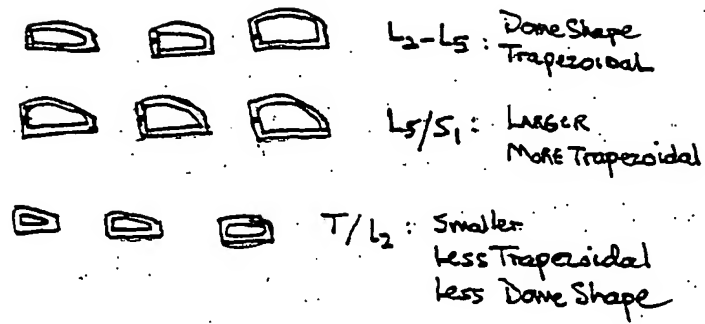 L2-L5 : Dome Shape
Trapezoidal
L5/S1 : LARGER
MORE Trapezoidal
T/L2 : Smaller
Less Trapezoidal
Less Dome Shape